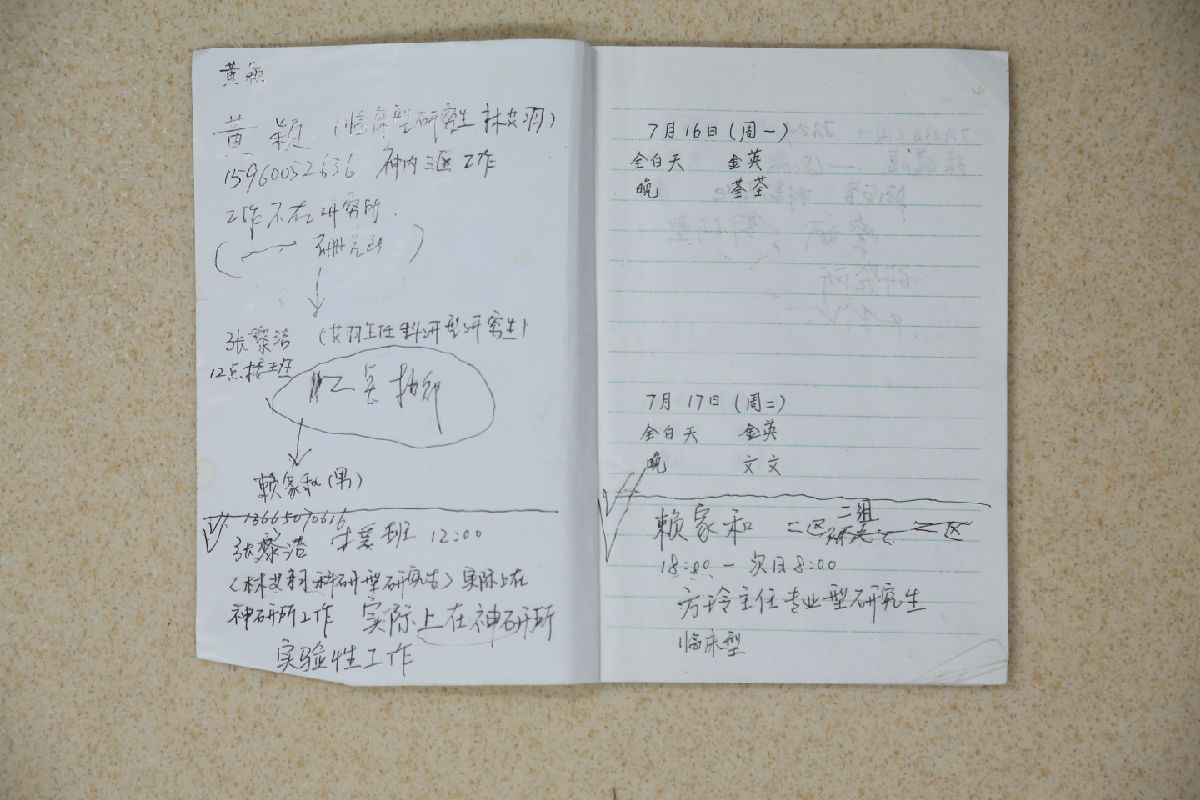 黄颖
黄颖 (临床型研究生 林艾羽)
15960052636 神内三区工作
工作不在研究所
张黎洁 (艾羽主任科研型研究生)
12点接班
赖家和 (男)
13665070616
张黎洁 来接班 12:00
(林艾羽科研型研究生) 实际上在
神研所工作 实际上在神研所
实验性工作
7月16日 (周一)
全白天 金英
晚 荃荃
7月17日 (周二)
全白天 金英
晚 文文
赖家和 二区 二组 三区
18:00 — 次日8:00
方玲主任专业型研究生
临床型